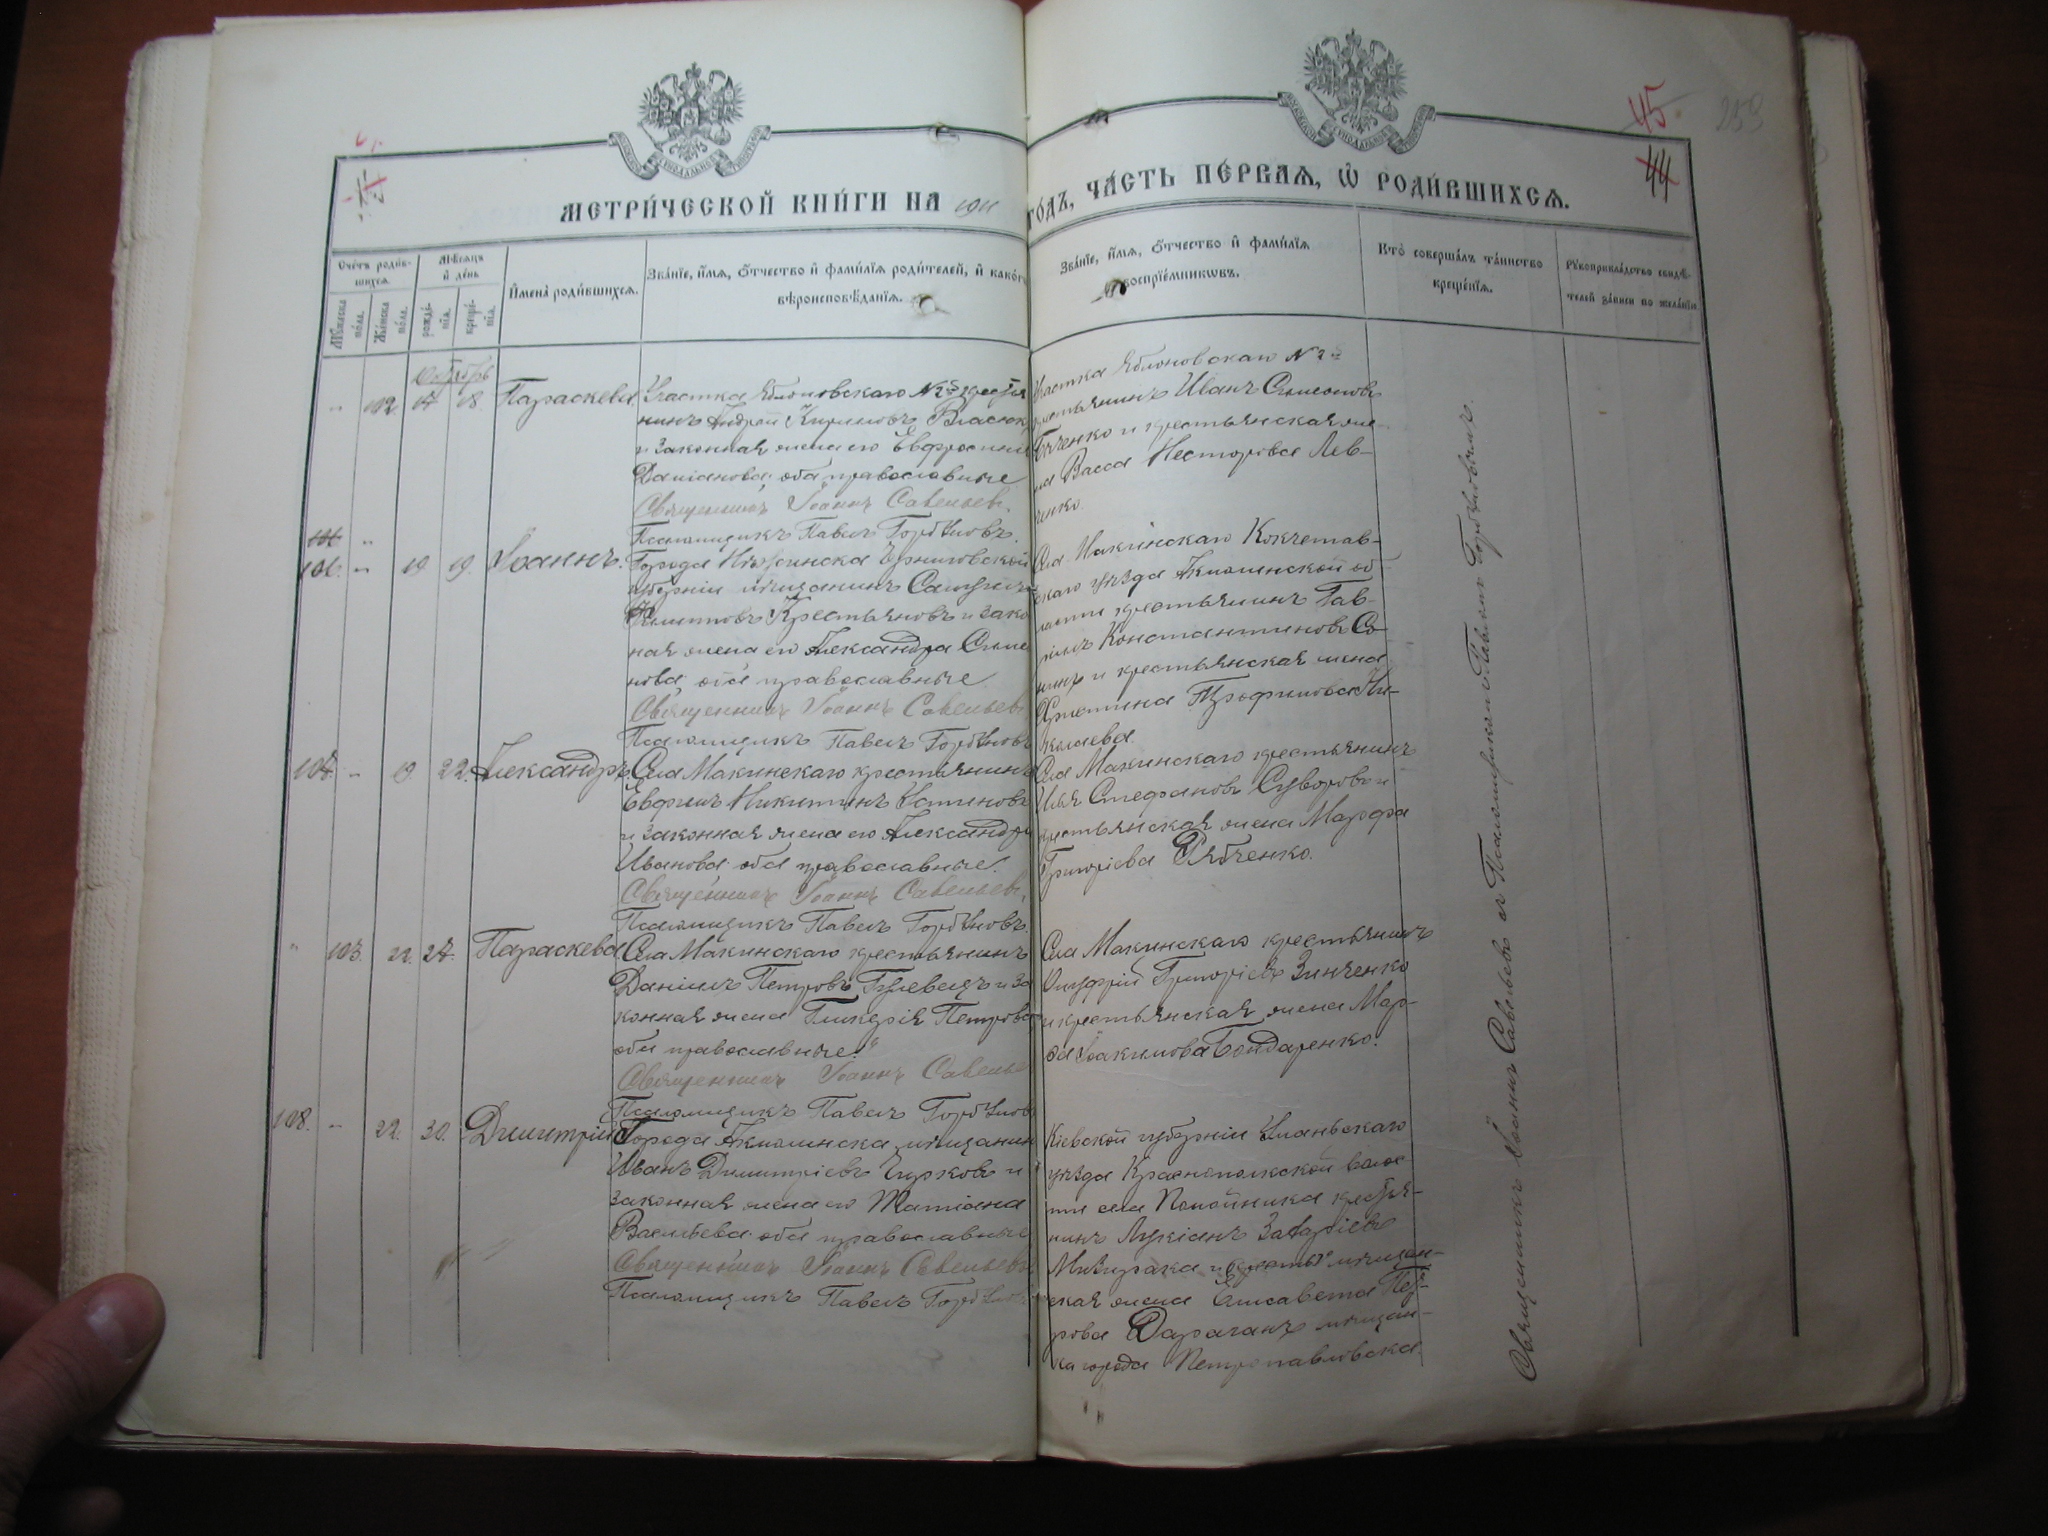 МЕТРИ́ЧЕСКОЙ КНИ́ГИ НА 1911 ГОДЪ, ЧА́СТЬ ПЕ́РВАЯ, Ѡ РОДИ́ВШИХСЯ.
45. 253
44
Сче́тъ роди́в-
шихся.
Му́жеска по́ла.
Же́нска по́ла.
Мѣ́сяцъ
и́ де́нь
рожде́-
нїя.
креще́-
нїя.
И҆мена̀ роди́вшихся.
Зва́нїе, и҆́мя, ѻ҆́тчество и҆ фами́лїя роди́телей, и҆ како́гѡ
вѣроисповѣ́данїя.
Зва́нїе, и҆́мя, ѻ҆́тчество и҆ фами́лїя
воспрїе́мникѡвъ.
Кто̀ соверша́лъ та́инство
креще́нїя.
Рꙋкоприкла́дство свидѣ́-
телей за́писи по жела́нїю
Октябрь
" 102 17 18. Параскева
Участка Яблоновскаго № 2й крестья
нинъ Андрей Кириловъ Власюк
и законная жена его Евфросинія
Даміанова, оба православные
Священникъ Іоаннъ Савельевъ.
Псаломщикъ Павелъ Горбуновъ.
Участка Яблоновскаго № 2й
крестьянинъ Иванъ Симеоновъ
и крестьянская же-
на Васса Несторова Лев-
ченко.
106. " 19 19. Іоаннъ.
Города Нѣжинска Черниговской
губерніи мѣщанинъ
Крестьяновъ и зако
ная жена его Александра Симе
нова, оба православные
Священникъ Іоаннъ Савельевъ
Псаломщикъ Павелъ Горбуновъ
Села Макинскаго Кокчетав-
скаго уѣзда Акмолинской об-
ласти крестьянинъ Гав-
ріилъ Константиновъ Со-
нинъ и крестьянская жена
Христина Трофимова Ни-
колаева.
107. " 19 22. Александръ.
Села Макинскаго крестьянинъ
Евфимъ Никитинъ Устиновъ
и законная жена его Александра
Иванова, оба православные.
Священникъ Іоаннъ Савельевъ.
Псаломщикъ Павелъ Горбуновъ.
Села Макинскаго крестьянинъ
Илья Стефановъ Суворовъ и
крестьянская жена Марфа
Григоріева Рябченко.
" 103. 22. 24. Параскева
Села Макинскаго крестьянинъ
Даніилъ Петровъ Гулевецъ и за
конная жена Гликерія Петрова
оба православные.
Священникъ Іоаннъ Савелье
Псаломщикъ Павелъ Горбунов
Села Макинскаго крестьянинъ
Онуфрій Григоріевъ Зинченко
и крестьянская жена Мар-
ѳа Іоакимова Бондаренко.
108. " 22. 30. Димитрій
Города Акмолинска мѣщанин
Иванъ Димитріевъ Чурковъ и
законная жена его Татіана
Васильева оба православные
Священникъ Іоаннъ Савельевъ
Псаломщикъ Павелъ Горбунов
Кіевской губерніи Уманьскаго
уѣзда Краснополкской волос-
ти села крестья-
нинъ Лукіанъ Захаріевъ
и мѣщан-
ская жена Елисавета Пет-
рова Дараганъ мѣщан-
ка города Петропавловска.
Священникъ Іоаннъ Савельевъ съ Псаломщикомъ Павломъ Горбуновымъ.